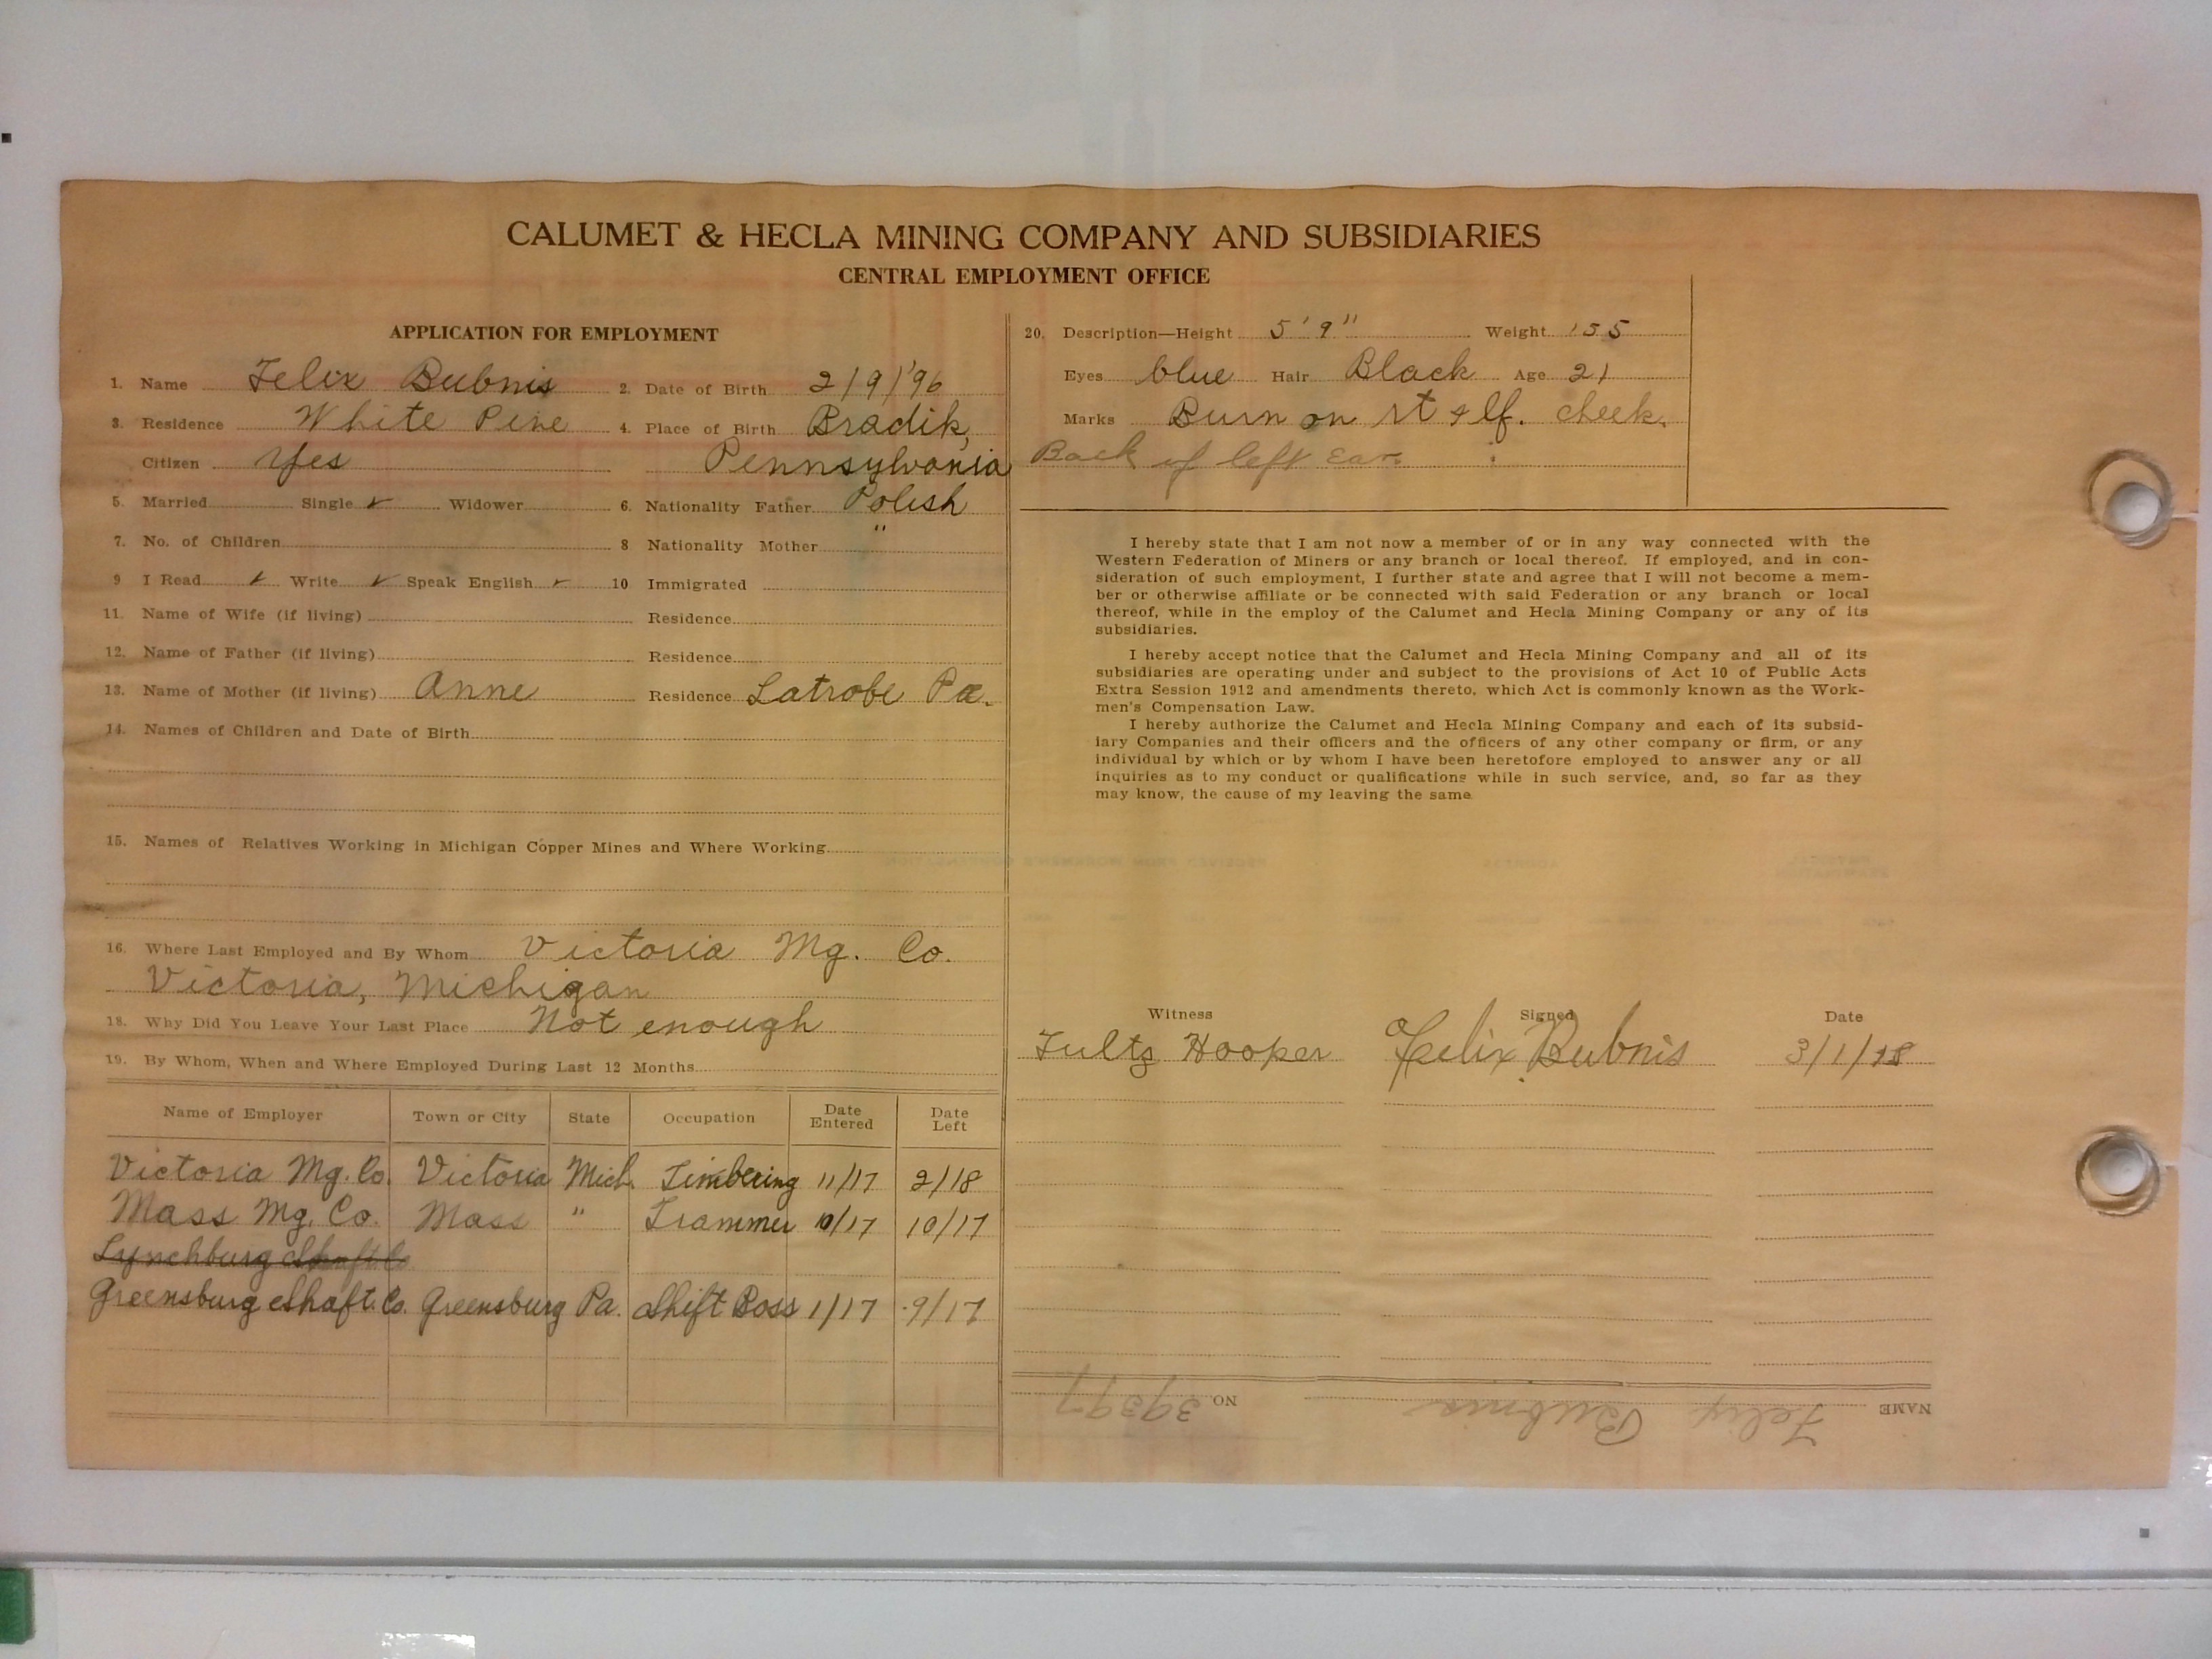 CALUMET & HECLA MINING COMPANY AND SUBSIDIARIES
CENTRAL EMPLOYMENT OFFICE
APPLICATION FOR EMPLOYMENT
1. Name Felix Bubnis 2. Date of Birth 2/9/'96
3. Residence White Pine 4. Place of Birth Bradik,
Citizen Yes Pennsylvania
5. Married Single ✓ Widower 6. Nationality Father Polish
7. No. of Children 8 Nationality Mother "
9 I Read ✓ Write ✓ Speak English ✓ 10 Immigrated
11. Name of Wife (if living) Residence
12. Name of Father (if living) Residence
13. Name of Mother (if living) Anne Residence Latrobe Pa.
14. Names of Children and Date of Birth
15. Names of Relatives Working in Michigan Copper Mines and Where Working
16. Where Last Employed and By Whom Victoria Mg. Co.
Victoria, Michigan
18. Why Did You Leave Your Last Place Not enough
19. By Whom, When and Where Employed During Last 12 Months
Name of Employer Town or City State Occupation Date Entered Date Left
Victoria Mg. Co. Victoria Mich. Timbering 11/17 2/18
Mass Mg. Co. Mass " Trammer 10/17 10/17
Lynchburg Shaft Co
Greensburg Shaft. Co. Greensburg Pa. Shift Boss 1/17 9/17
20. Description—Height 5' 9" Weight 155
Eyes blue Hair Black Age 21
Marks Burn on rt & lf. cheek.
Back of left Ear.
I hereby state that I am not now a member of or in any way connected with the
Western Federation of Miners or any branch or local thereof. If employed, and in con-
sideration of such employment, I further state and agree that I will not become a mem-
ber or otherwise affiliate or be connected with said Federation or any branch or local
thereof, while in the employ of the Calumet and Hecla Mining Company or any of its
subsidiaries.
I hereby accept notice that the Calumet and Hecla Mining Company and all of its
subsidiaries are operating under and subject to the provisions of Act 10 of Public Acts
Extra Session 1912 and amendments thereto, which Act is commonly known as the Work-
men's Compensation Law.
I hereby authorize the Calumet and Hecla Mining Company and each of its subsid-
iary Companies and their officers and the officers of any other company or firm, or any
individual by which or by whom I have been heretofore employed to answer any or all
inquiries as to my conduct or qualifications while in such service, and, so far as they
may know, the cause of my leaving the same
Witness Signed Date
Fultz Hooper Felix Bubnis 3/1/18
NAME Felix Bubnis NO. 39397